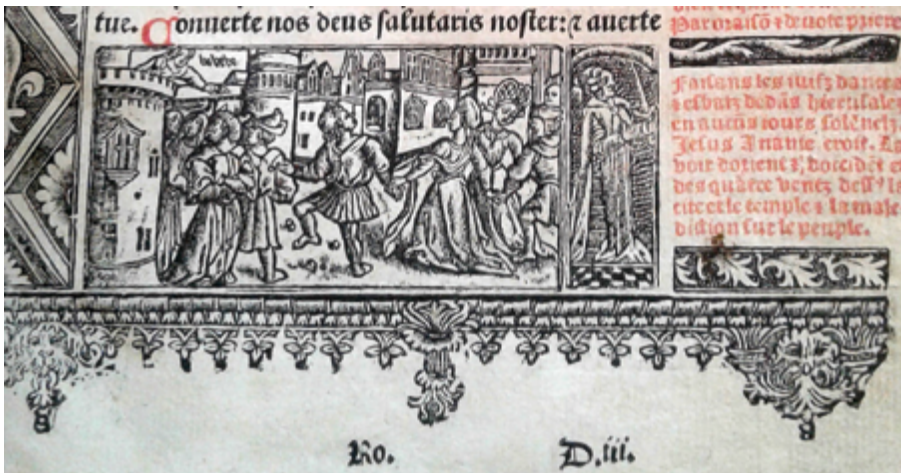 tue. Conuerte nos deus salutaris noster: ⁊ auerte
Par oraisō ⁊ deuote priere
Faisans les iuifz dances
⁊ esbatz dedās hierusalez
en aucūs iours solēnelz.
Jesus Ananie croit. La
voix dorient ⁊ doccidēt et
des quatre ventz dessꝰ la
cite et le temple ⁊ la male
diction sur le peuple.
Ro.
D.iii.